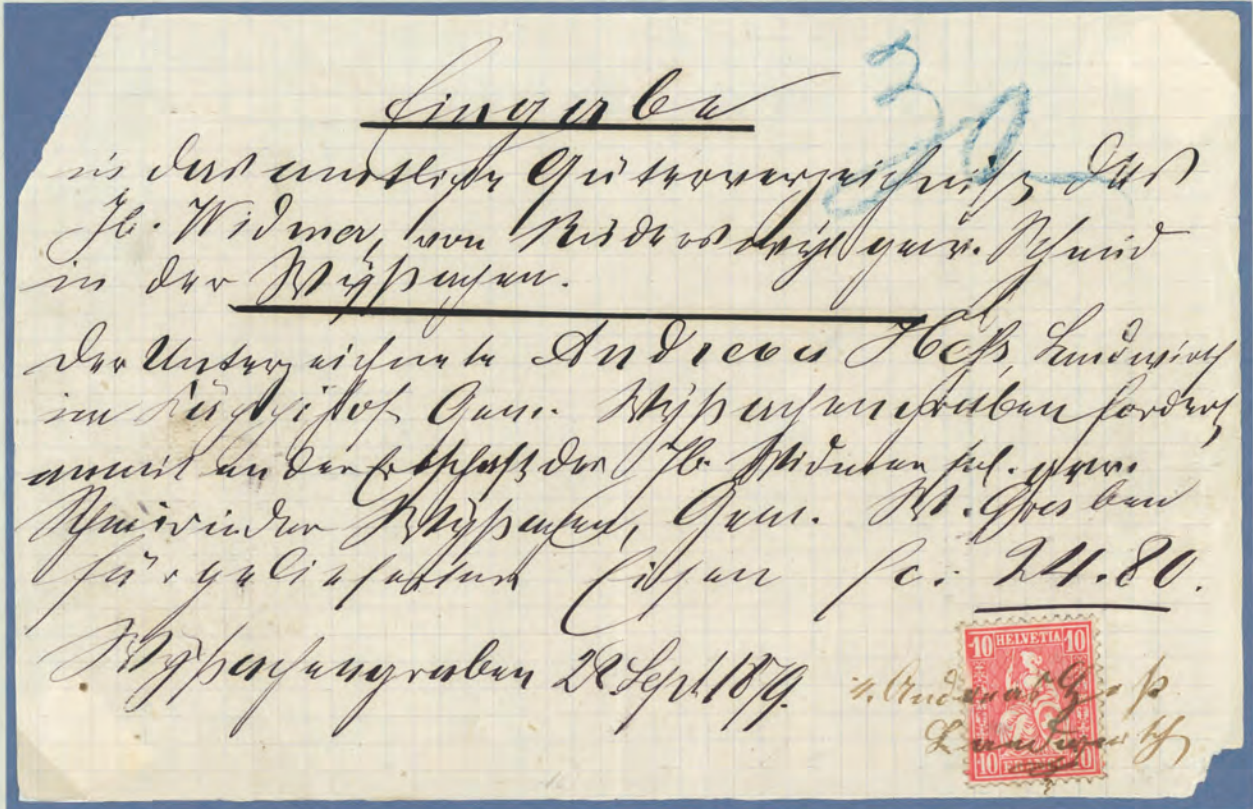 Eingabe
30
in das amtliche Güterverzeichniß des
Jb. Widmer, von Rüderswyl gew. Schmid
in der Wyßachen.
Der Unterzeichnete Andreas Heß, Landwirth
im Gem. Wyßachengraben fordert
anmit an der Erbschaft des Jb. Widmer sel. gew.
Schmid in der Wyßachen, Gem. W. Graben
für geliefertes Eisen fr. 24.80.
Wyßachengraben 28. Sept. 1879.
10 HELVETIA 10
Andreas Heß
Landwirth
10 10